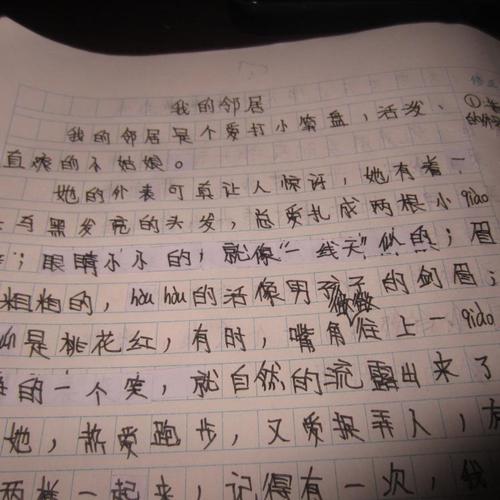 我的邻居
我的邻居是个爱打小算盘，活泼、
直爽的小姑娘。
她的外表可真让人惊讶，她有着一
乌黑发亮的头发，总爱扎成两根小qiào
；眼睛小小的，就像“一线天”似的；眉
粗粗的，hòu hòu的活像男孩子的剑眉；
是桃花红，有时，嘴角微微往上一qiào
的一个笑，就自然的流露出来了
她，热爱跑步，又爱捉弄人，
两样一起来，记得有一次，我
①